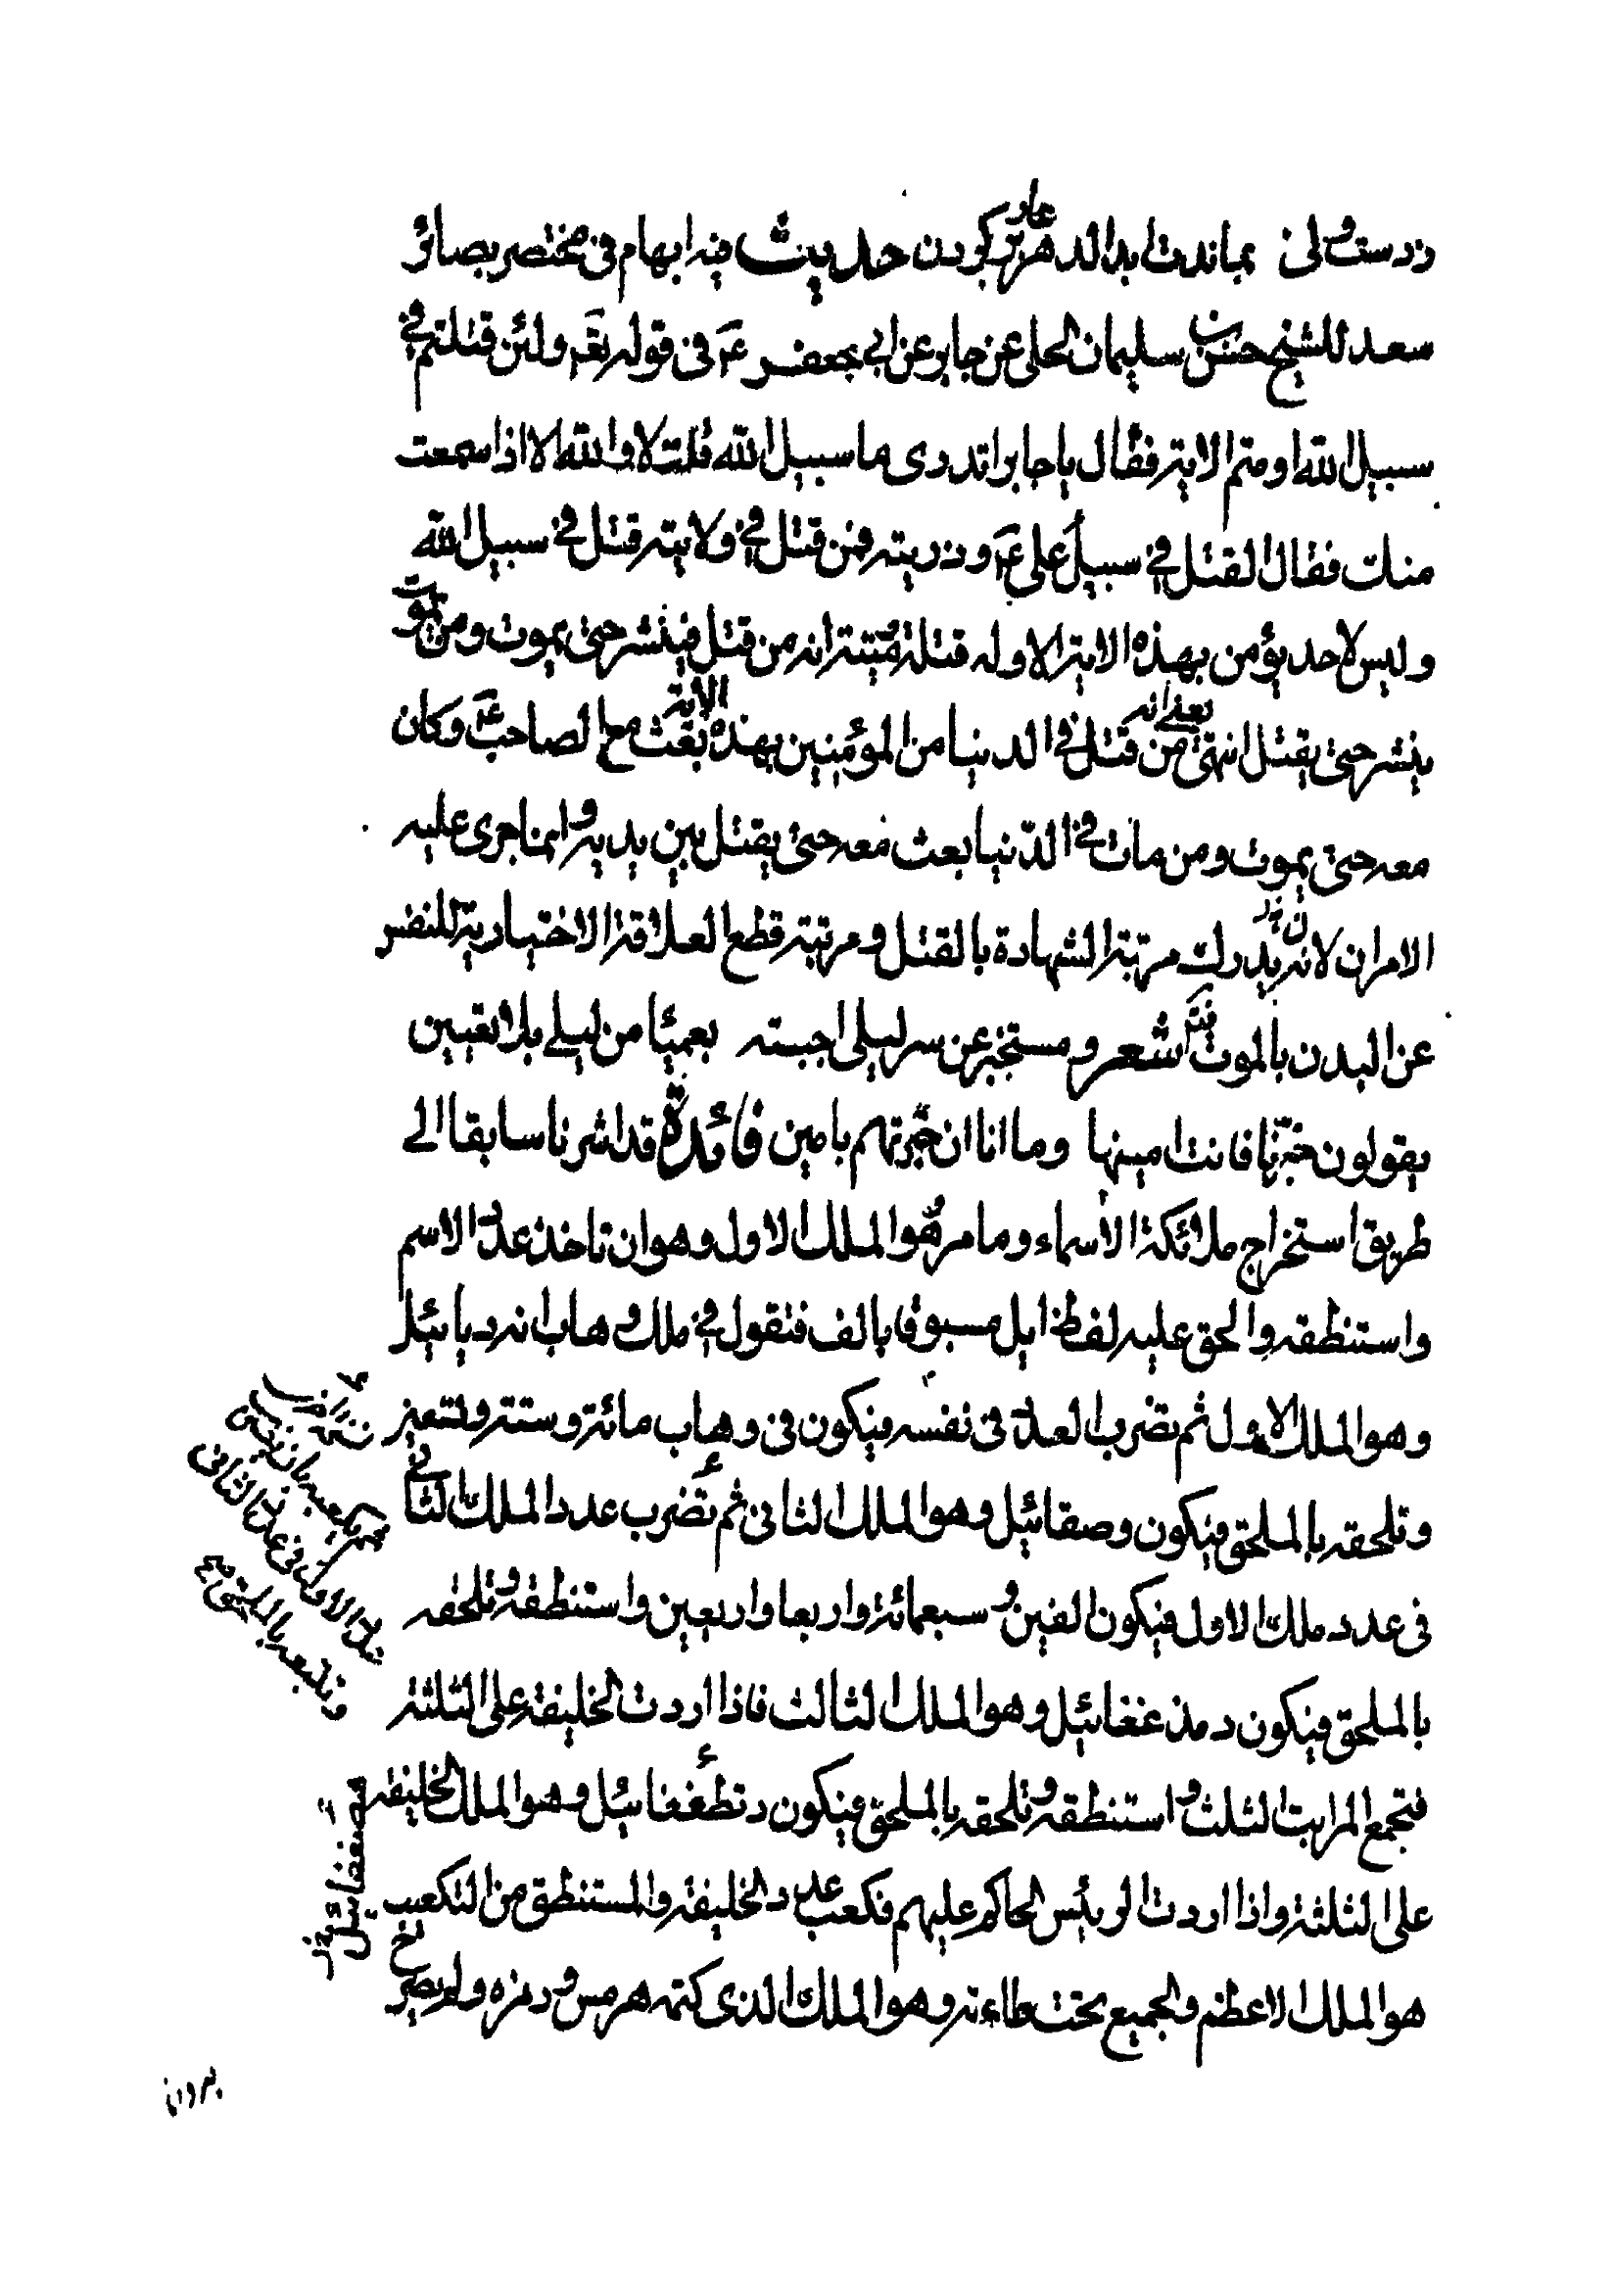 بماندت ابد الدهر حديث فيه ابهام فى مختصر بصائر
سعد للشيخ حسن بن سليمان الحلى عن جابر عن ابى جعفر عم فى قوله تعه ولئن قتلتم فى
سبيل الله او متم الاية فقال يا جابر اتدرى ما سبيل الله قلت لا والله الا اذا سمعت
منك فقال القتل فى سبيل على عم وذريته فمن قتل فى ولايته قتل فى سبيل الله
وليس لاحد يؤمن بهذه الاية الا وله قتلة وميتة انه من قتل فينشر حتى يموت ومن يموت
ينشر حتى يقتل انتهى يعنى انه من قتل فى الدنيا من المؤمنين بهذه الاية بعث مع الصاحب عم وكان
معه حتى يموت ومن مات فى الدنيا بعث معه حتى يقتل بين يديه وانما جرى عليه
الامران لانه يدرك مرتبة الشهادة بالقتل ومرتبة قطع العلاقة الاختيارية للنفس
عن البدن بالموت شعر ومستخبر عن سر ليلى اجبته بعمياء من ليلى بلا تعيين
يقولون خبرنا فانت امينها وما انا ان خبرتهم بامين فائدة قد اشرنا سابقا الى
طريق استخراج ملائكة الاسماء وما مر هو الملك الاول وهو ان تاخذ عدد الاسم
واستنطقه والحق عليه لفظ ايل مسبوقا بالف فتقول فى ملك وهاب انه ديائيل
وهو الملك الاول ثم تضرب العدد فى نفسه فيكون فى وهاب مائة وستة وتسعين
وتلحقه بالملحق فيكون وصقائيل وهو الملك الثانى ثم تضرب عدد الملك الثانى
فى عدد ملك الاول فيكون الفين وسبعمائة واربعا واربعين واستنطقه وتلحقه
بالملحق فيكون دمذغغائيل وهو الملك الثالث فاذا اردت الخليفة على الثلثة
فتجمع المراتب الثلث واستنطقه وتلحقه بالملحق فيكون دنظغغائيل وهو الملك الخليفة
على الثلثة واذا اردت الرئيس الحاكم عليهم فكعب عدد الخليفة والمستنطق من التكعيب
هو الملك الاعظم والجميع تحت طاعته وهو الملك الذى كتمه هرمس ورمزه ولم يصرح